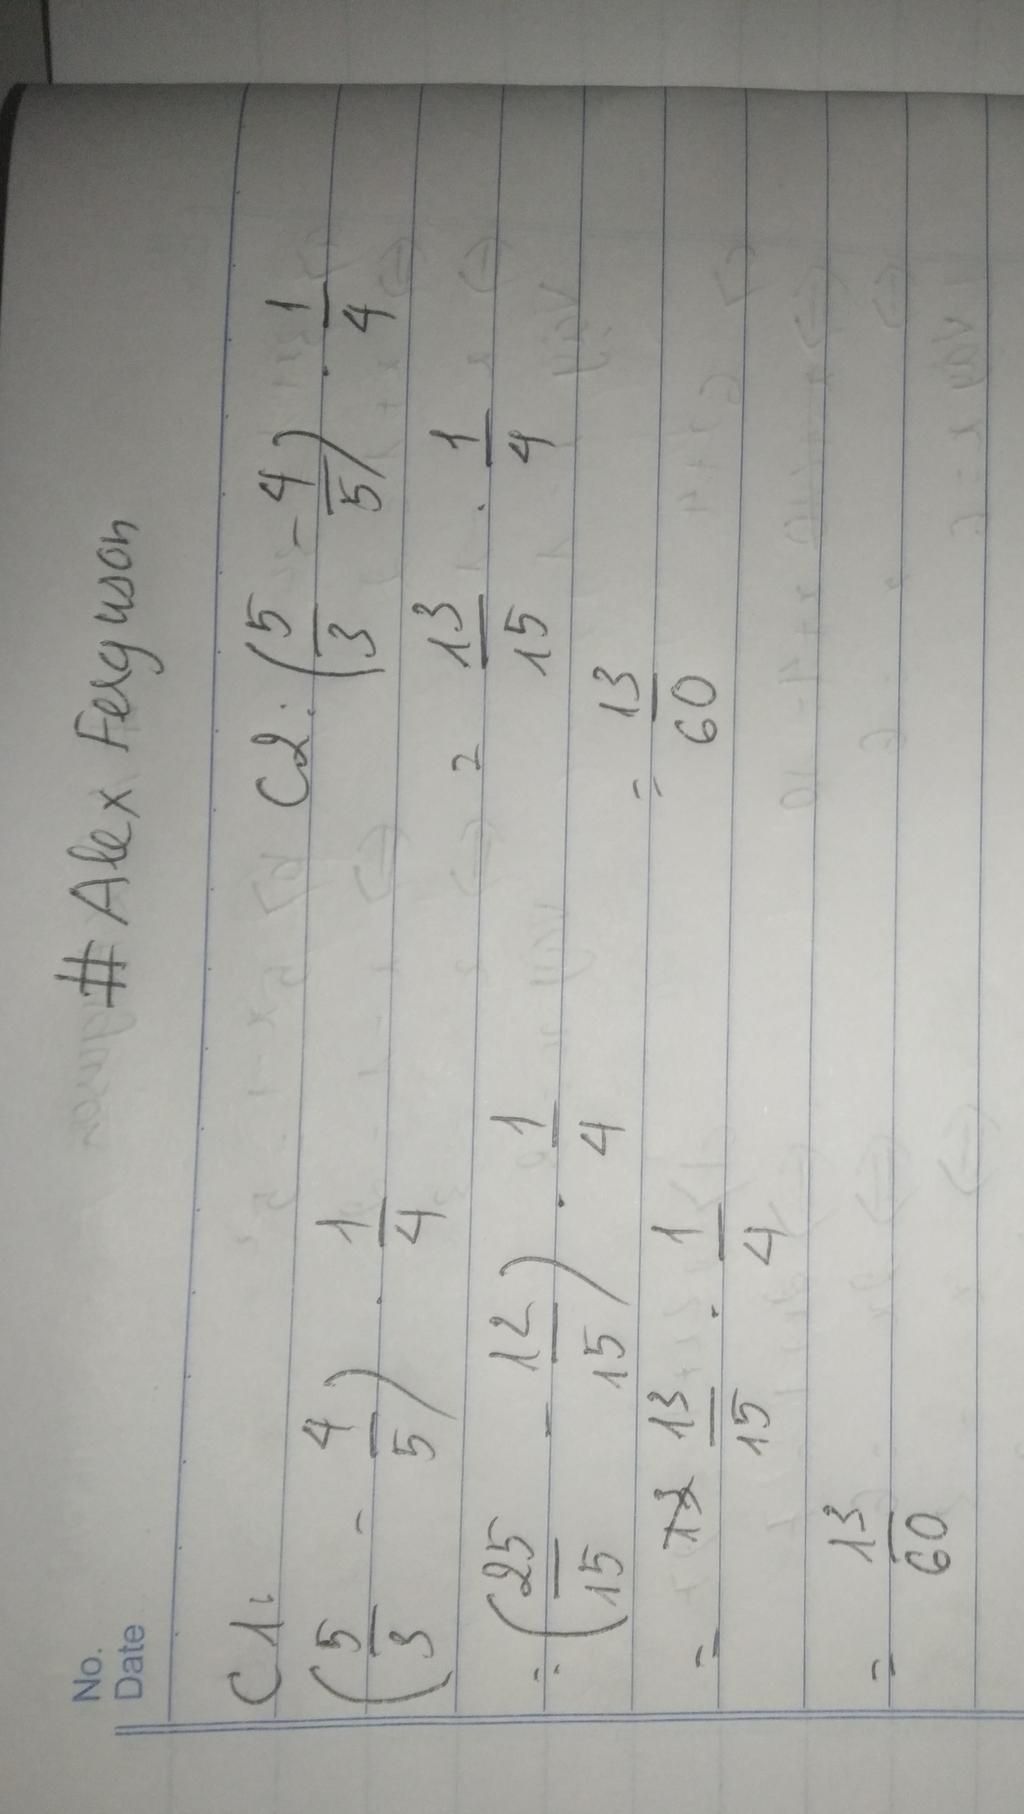 No.
Date
# Alex Ferguson
C1:
(5/3 - 4/5) . 1/4
= (25/15 - 12/15) . 1/4
= 13/15 . 1/4
= 13/60
C2: (5/3 - 4/5) . 1/4
= 13/15 . 1/4
= 13/60